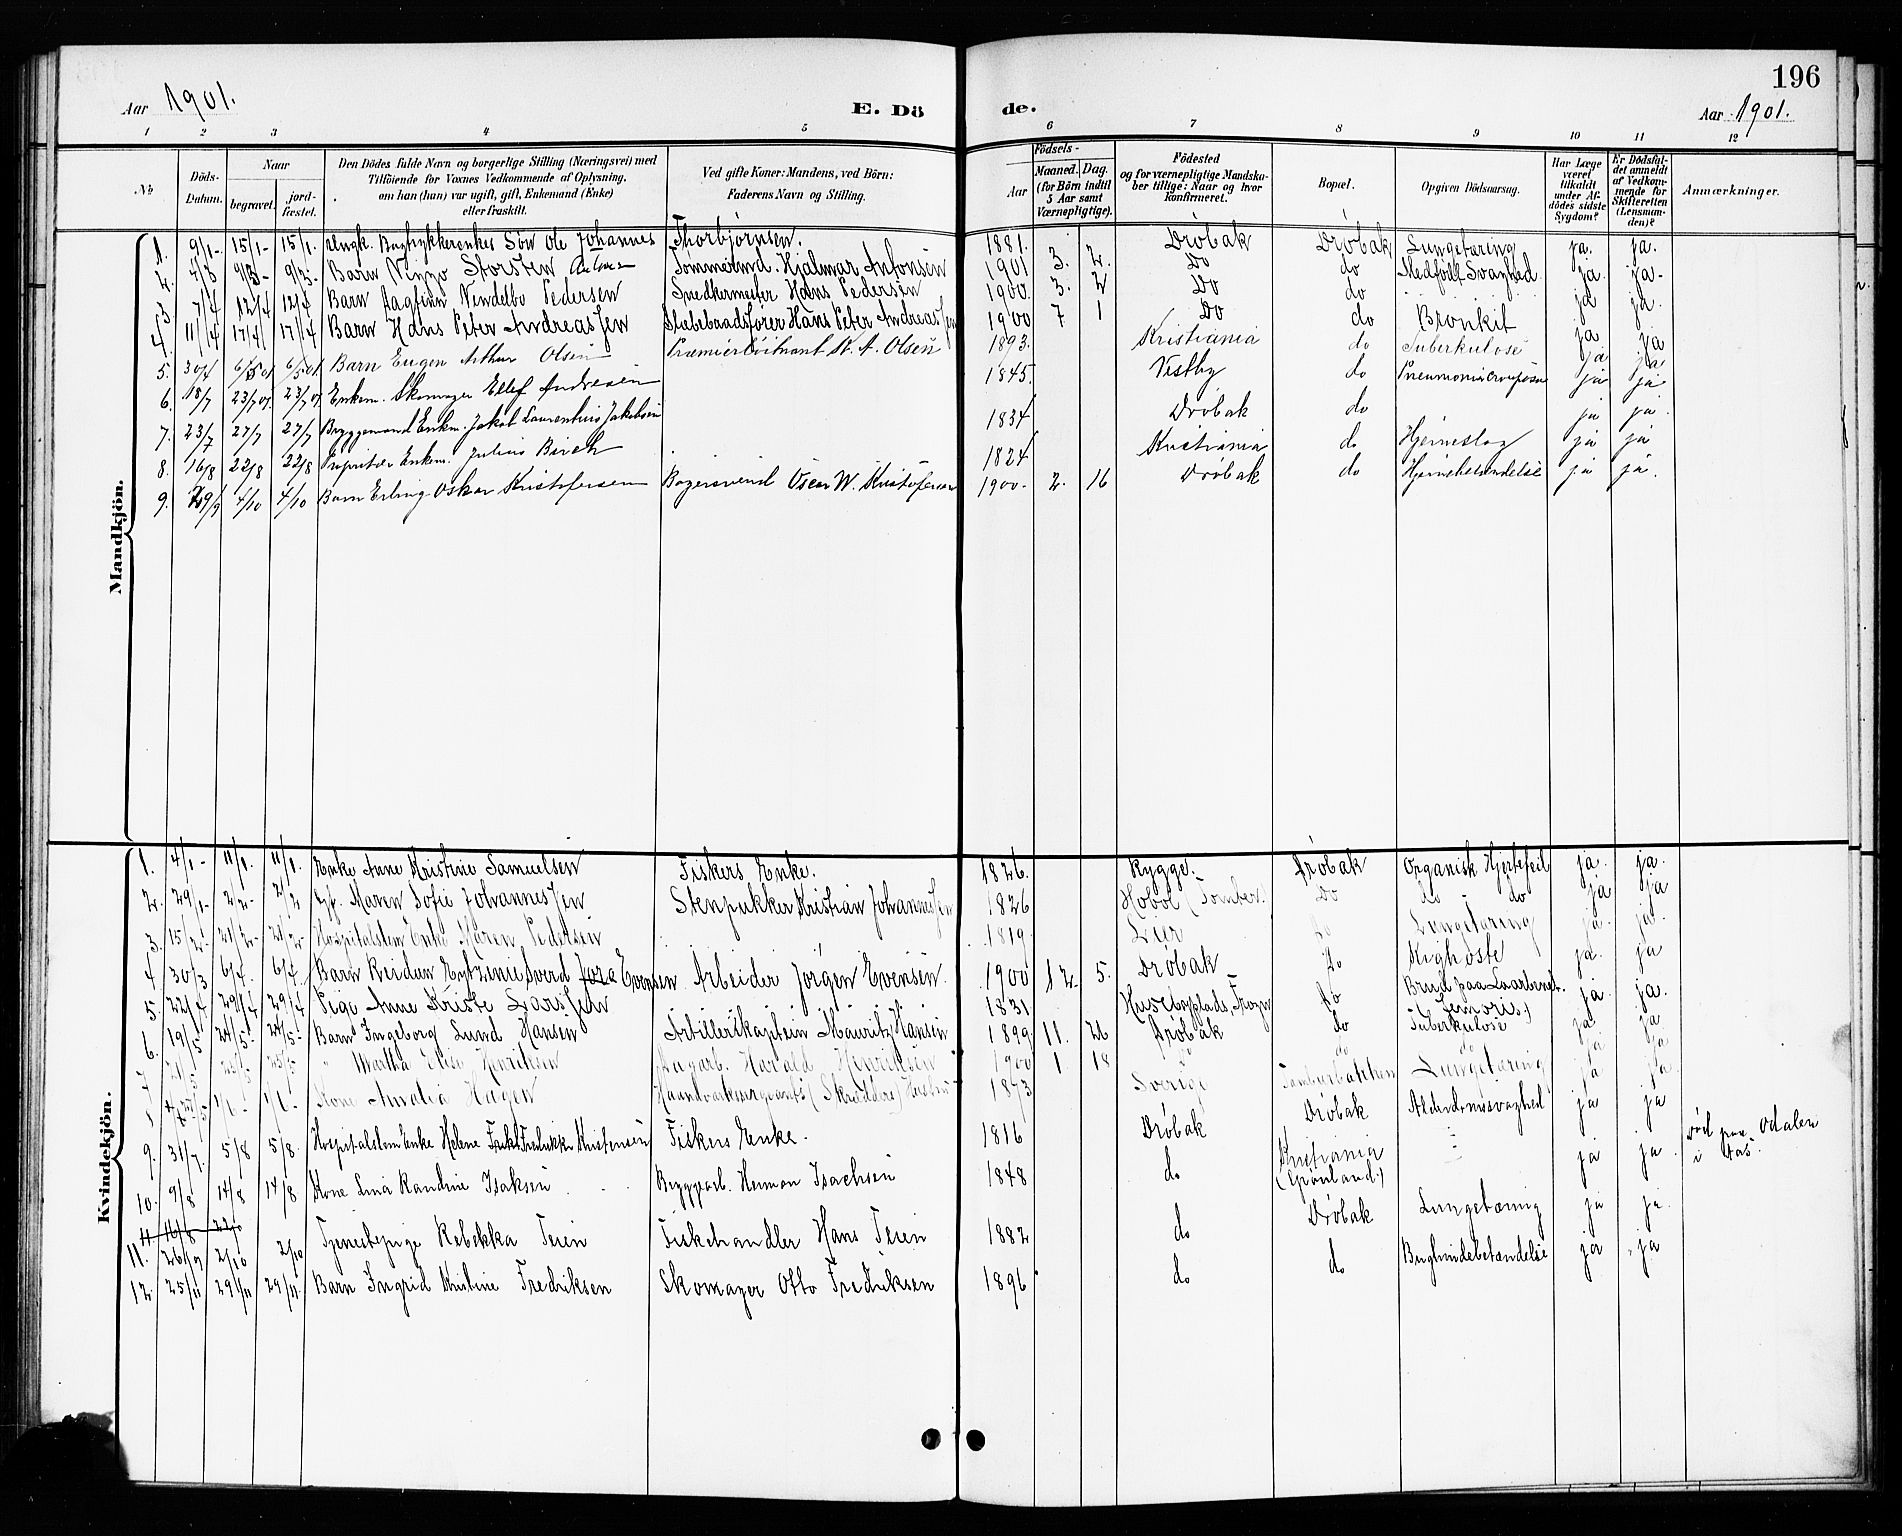 196
Aar 1901. E. Dö de. Aar 1901.
1 2 3 4 5 6 7 8 9 10 11 12
No
Döds-Datum.
Naar
begravet.
jord-fæstet.
Den Dödes fulde Navn og borgerlige Stilling (Næringsvei) med
Tilföiende for Voxnes Vedkommende af Oplysning,
om han (hun) var ugift, gift, Enkemand (Enke)
eller fraskilt.
Ved gifte Koner: Mandens, ved Börn:
Faderens Navn og Stilling.
Födsels-
Aar
Maaned. Dag.
(for Börn indtil
5 Aar samt
Værnepligtige).
Födested
og for værnepligtige Mandska-
ber tillige: Naar og hvor
konfirmeret.
Bopæl.
Opgiven Dödsaarsag.
Har Læge
været
tilkaldt
under Af-
dödes sidste
Sygdom?
Er Dödsfal-
det anmeldt
af Vedkom-
mende for
Skifteretten
(Lensman-
den)?
Anmærkninger.
Mandkjön.
1. 9/1- 15/1- 15/1. Ungk. Søn Ole Johannes Thorbjørnsen. 1881. Drøbak Drøbak Lungetæring ja. ja.
2. 4/3 9/3- 9/3. Barn Viggo Torsten Tømmermd. Hjalmar Antonsen 1901 3. 2. Do do Medfødt Svaghed. ja. ja.
3. 7/4 12/4 12/4 Barn Aagfinn Vindelbo Pedersen Snedkermester Hans Pedersen 1900. 3. 2 Do do ja ja.
4. 11/4 17/4 17/4 Barn Hans Peter Andreassen Slæbebaadsfører Hans Peter Andreassen 1900 7 1 Do do Bronkit ja ja
5. 30/4 6/5 01 6/5 01. Barn Eugen Arthur Olsen Premierløitnant K. A. Olsen 1893. Kristiania do Tuberkulose ja ja
6. 18/7 23/7 01. 23/7 01. Enkem. Skomager Ellef Andresen 1845. Vestby do Pneumonia crouposa ja ja
7. 23/7 27/7 27/7 Bryggemand Enkm. Jakob Laurentius Jakobsen 1834 Drøbak do ja ja.
8. 16/8 22/8 22/8 Proprietær Enkem. Julius Birch 1824 Kristiania do Hjerneslag ja ja
9. 29/9 4/10 4/10 Barn Erling Oskar Kristofersen Bagersvend Oscar W. Kristofersen 1900. 2. 16 Drøbak do Hjernebetendelse ja ja.
Kvindekjön.
1. 4/1- 11/1. 11/1. Enke Anne Kristine Samuelsen Fiskers Enke. 1826. Rygge. Drøbak Organisk Hjertefeil ja. ja.
2. 29/1- 2/2- 2/2 Maren Sofie Johannessen Stenpukker Kristian Johannessen 1826 Hobøl (Tomber) Do do do ja ja
3. 15/2- 21/2- 21/2- Hospitalslem Enke Maren Pedersen 1819. Lier do Lungetæring ja. ja.
4 30/3 6/4. 6/4 Barn Reidun Evensen Arbeider Jørgen Evensen. 1900 12. 5. Drøbak do Kighoste ja. ja
5. 22/4 29/4 29/4 Pige Anne Kristine Larssen 1831 Husebyplads, Frogn do Brud paa Laarbenet. ja. ja.
6. 19/5 24/5- 24/5- Barn Ingeborg Lund Hansen Artillerikaptein Mauritz Hansen 1899 11. 26 Drøbak do Tuberkulose ja. ja
7 21/5 25/5 25/5 " Martha Henriksen Dagarb. Harald Henriksen 1900 1 18 do do do ja ja
8 1/6- 1/6- Kone Amalia Hagen 1873 Sverige Tomberbakken Lungetæring ja ja.
9. 31/7. 5/8 5/8. Hospitalslem Enke Helene Fredrikke Kristensen Fiskers Enke. 1816 Drøbak Drøbak Alderdomssvaghed ja ja
10. 9/8 14/8 14/8 Kone Lina Randine Isaksen Bryggearb. Herman Isachsen 1848 do Kristiania (Grønland.) ja ja. Død paa Odalen
11 16/8 22/8
11. 26/9 2/10 2/10 Tjenestepige Rebekka Teien Fiskehandler Hans Teien 1882 do Drøbak Lungetæring ja ja.
12. 25/11 29/11 29/11. Barn Ingrid Kristine Fredriksen Skomager Otto Fredriksen 1896 do do Bughindebetændelse ja ja